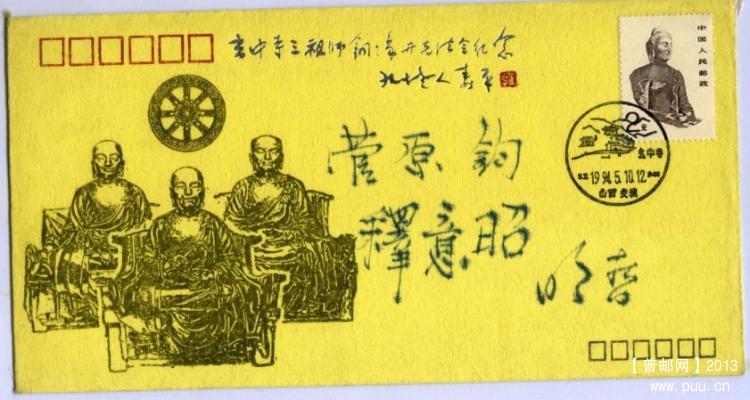 玄中寺三祖师铜像开光法会纪念
中国人民邮政
玄中寺
1994.5.10.12
山西 交城
菅原 鈞
釋意昭
明哲
【普邮网】2013
www.puu.cn